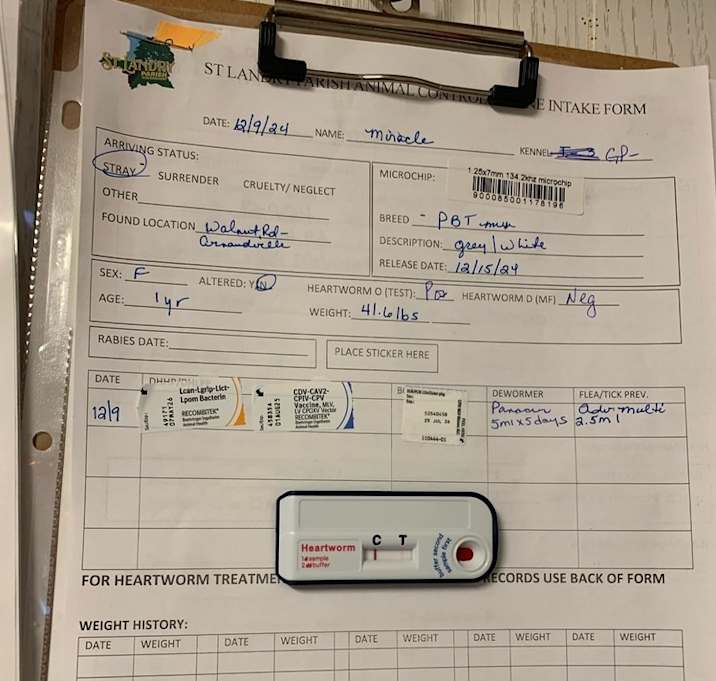 ST LANDRY
PARISH
ST LANDRY PARISH ANIMAL CONTROL INTAKE FORM
DATE: 12/9/24 NAME: Miracle KENNEL GP-
ARRIVING STATUS:
STRAY SURRENDER CRUELTY/ NEGLECT
OTHER
FOUND LOCATION Walnut Rd-
Arnaudville
MICROCHIP: 1.25x7mm 134.2khz microchip
900085001178196
BREED - PBT mix
DESCRIPTION: grey/white
RELEASE DATE: 12/15/24
SEX: F ALTERED: Y/N HEARTWORM O (TEST): Pos HEARTWORM D (MF) Neg
AGE: 1yr WEIGHT: 41.6lbs
RABIES DATE: PLACE STICKER HERE
DATE DHHP/ DEWORMER FLEA/TICK PREV.
12/9 Panacur Adv multi
5ml x 5 days 2.5ml
Lcan-Lgrip-Lict-
Lpom Bacterin
RECOMBITEK
Boehringer Ingelheim
Animal Health
49171
07MAY26
CDV-CAV2-
CPIV-CPV
Vaccine, MLV,
LV CPOXV Vector
RECOMBITEK
Boehringer Ingelheim
Animal Health
45835A
01AUG25
Heartworm
1 sample
2 buffer
C T
sample first
buffer second
FOR HEARTWORM TREATME RECORDS USE BACK OF FORM
WEIGHT HISTORY:
DATE WEIGHT DATE WEIGHT DATE WEIGHT DATE WEIGHT DATE WEIGHT